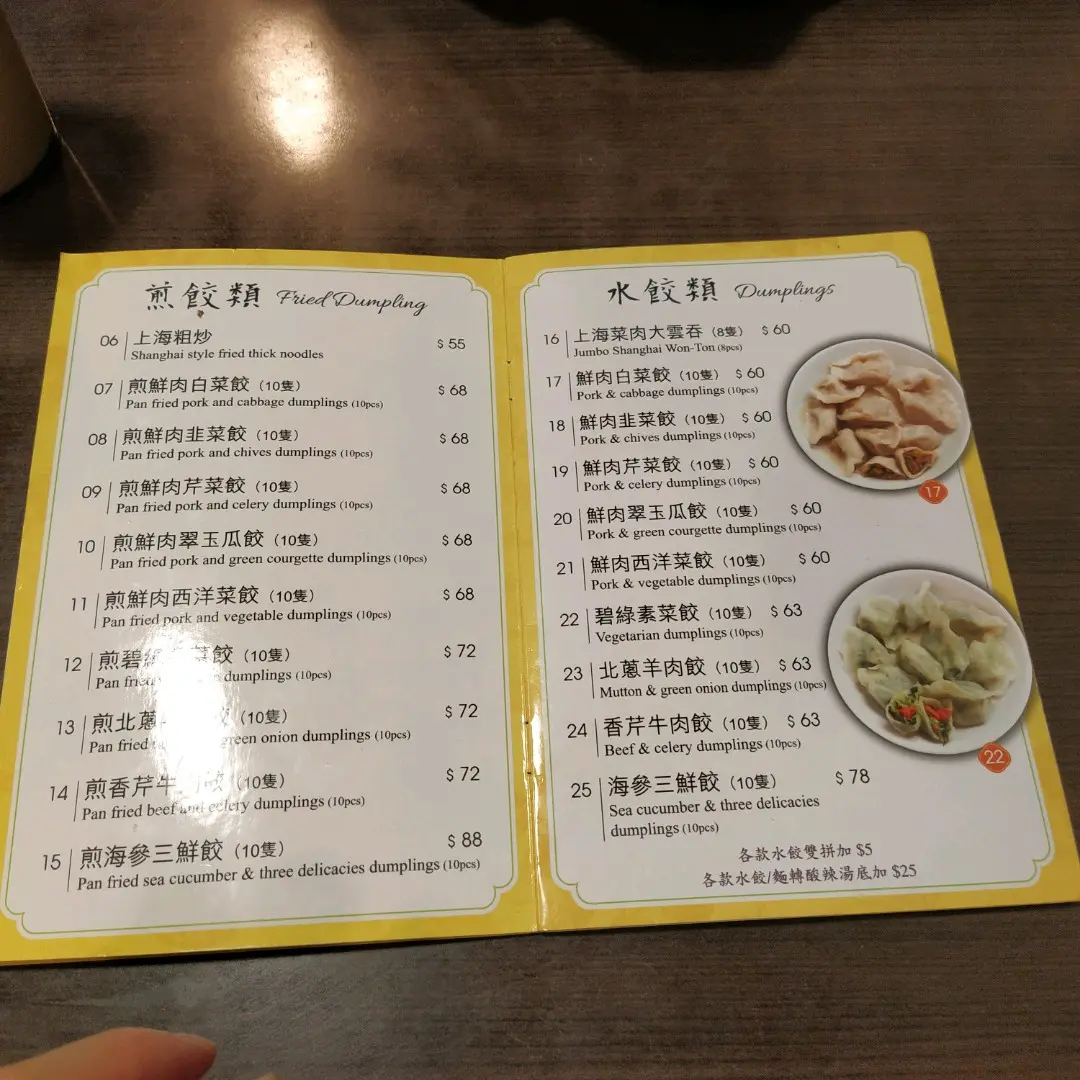 煎餃類 Fried Dumpling
06 上海粗炒 $ 55
Shanghai style fried thick noodles
07 煎鮮肉白菜餃（10隻） $ 68
Pan fried pork and cabbage dumplings (10pcs)
08 煎鮮肉韭菜餃（10隻） $ 68
Pan fried pork and chives dumplings (10pcs)
09 煎鮮肉芹菜餃（10隻） $ 68
Pan fried pork and celery dumplings (10pcs)
10 煎鮮肉翠玉瓜餃（10隻） $ 68
Pan fried pork and green courgette dumplings (10pcs)
11 煎鮮肉西洋菜餃（10隻） $ 68
Pan fried pork and vegetable dumplings (10pcs)
12 煎碧 菜餃（10隻） $ 72
Pan fried dumplings (10pcs)
13 煎北蔥 （10隻） $ 72
Pan fried green onion dumplings (10pcs)
14 煎香芹牛 餃（10隻） $ 72
Pan fried beef and celery dumplings (10pcs)
15 煎海參三鮮餃（10隻） $ 88
Pan fried sea cucumber & three delicacies dumplings (10pcs)
水餃類 Dumplings
16 上海菜肉大雲吞（8隻） $ 60
Jumbo Shanghai Won-Ton (8pcs)
17 鮮肉白菜餃（10隻） $ 60
Pork & cabbage dumplings (10pcs)
18 鮮肉韭菜餃（10隻） $ 60
Pork & chives dumplings (10pcs)
19 鮮肉芹菜餃（10隻） $ 60
Pork & celery dumplings (10pcs)
20 鮮肉翠玉瓜餃（10隻） $ 60
Pork & green courgette dumplings (10pcs)
21 鮮肉西洋菜餃（10隻） $ 60
Pork & vegetable dumplings (10pcs)
22 碧綠素菜餃（10隻） $ 63
Vegetarian dumplings (10pcs)
23 北蔥羊肉餃（10隻） $ 63
Mutton & green onion dumplings (10pcs)
24 香芹牛肉餃（10隻） $ 63
Beef & celery dumplings (10pcs)
25 海參三鮮餃（10隻） $ 78
Sea cucumber & three delicacies
dumplings (10pcs)
各款水餃雙拼加 $5
各款水餃/麵轉酸辣湯底加 $25
17
22